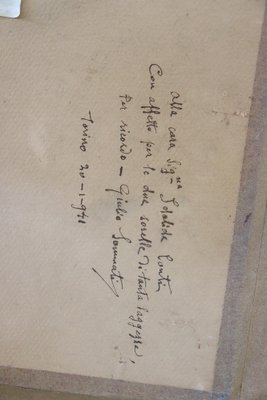 alla cara Sig.na Isolida Conti
Con affetto per le due sorelle di tanta saggezza,
Per ricordo – Giulio Sommati
Torino 20-1-941